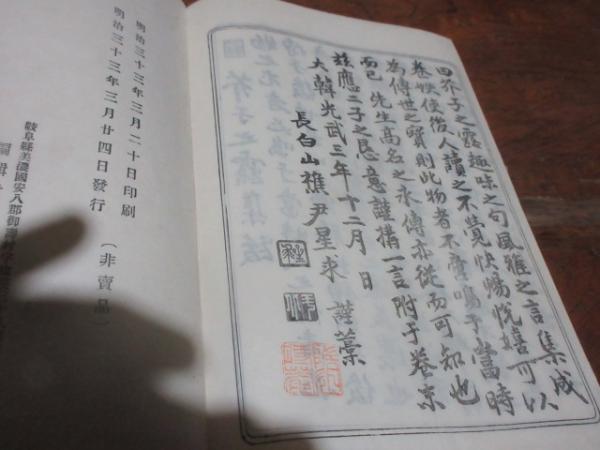 曰芥子之露趣味之句風雅之言集成
卷帙使後人讀之不覺快暢悦嬉可以
為傳世之寶則此物者不啻鳴于當時
而已 先生高名之永傳亦從而可知也
玆應二子之恳意謹構一言附于卷末
大韓光武三年十二月 日
長白山樵尹星求 謹藁
明治三十三年三月二十日印刷
明治三十三年三月廿四日發行 (非賣品)
岐阜縣美濃國安八郡御壽村
編輯